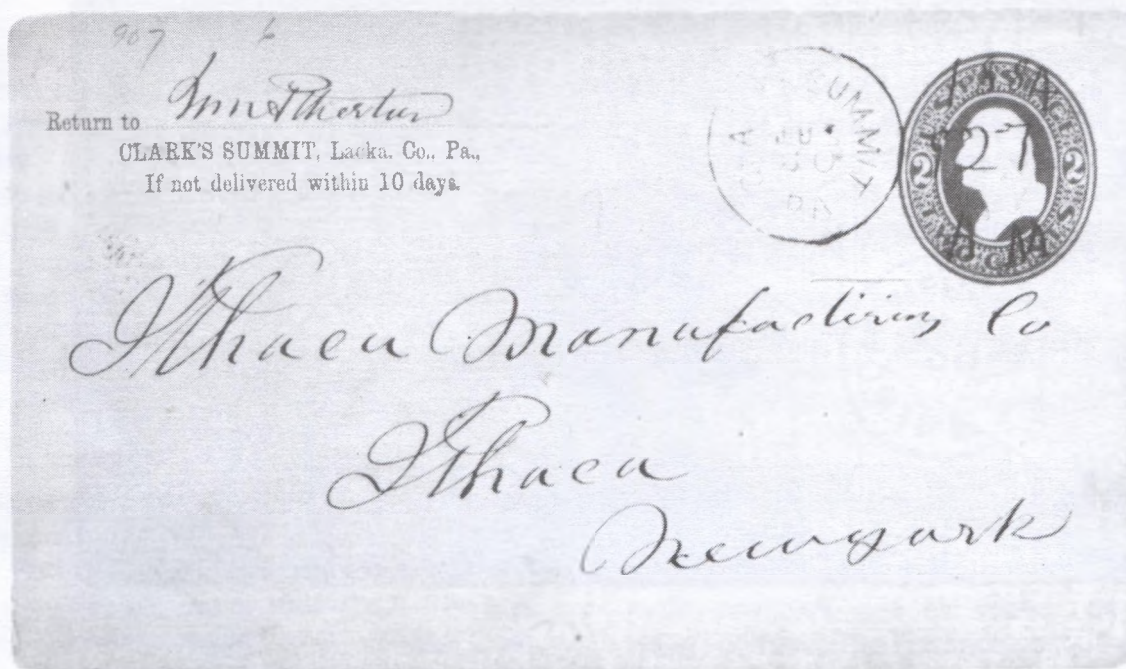 907
Return to Wm Atherton
CLARK'S SUMMIT, Lacka. Co., Pa.,
If not delivered within 10 days.
SUMMIT
PA
2 2
Ithaca Manufacturing Co
Ithaca
Newyork